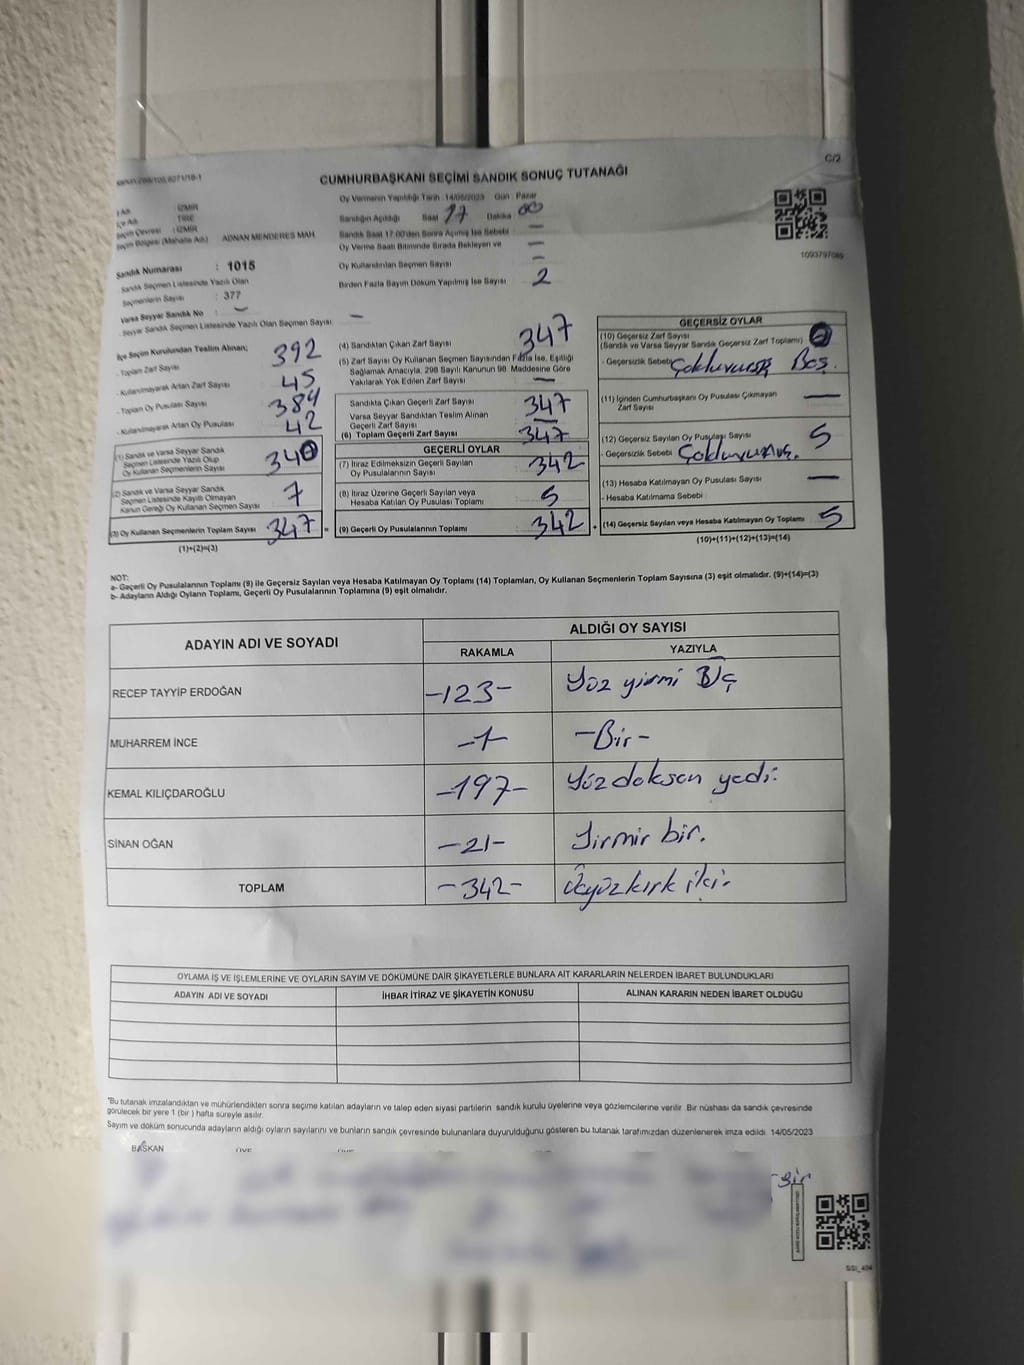 C/2
CUMHURBAŞKANI SEÇİMİ SANDIK SONUÇ TUTANAĞI
: İZMİR
: TİRE
: İZMİR
Seçim Bölgesi (Mahalle Adı) ADNAN MENDERES MAH.
Sandık Numarası : 1015
Sandık Seçmen Listesinde Yazılı Olan
Seçmenlerin Sayısı : 377
Varsa Seyyar Sandık No : -
Seyyar Sandık Seçmen Listesinde Yazılı Olan Seçmen Sayısı : -
Oy Vermenin Yapıldığı Tarih : 14/05/2023 Gün : Pazar
Sandığın Açıldığı Saat 17 Dakika 00
Sandık Saat 17.00'den Sonra Açılmış İse Sebebi : -
Oy Verme Saati Bitiminde Sırada Bekleyen ve -
Oy Kullandırılan Seçmen Sayısı -
Birden Fazla Sayım Döküm Yapılmış İse Sayısı : 2
1093797089
İlçe Seçim Kurulundan Teslim Alınan;
- Toplam Zarf Sayısı 392
- Kullanılmayarak Artan Zarf Sayısı 45
- Toplam Oy Pusulası Sayısı 384
- Kullanılmayarak Artan Oy Pusulası 42
(1) Sandık ve Varsa Seyyar Sandık
Seçmen Listesinde Yazılı Olup
Oy Kullanan Seçmenlerin Sayısı 340
(2) Sandık ve Varsa Seyyar Sandık
Seçmen Listesinde Kayıtlı Olmayan
Kanun Gereği Oy Kullanan Seçmen Sayısı 7
(3) Oy Kullanan Seçmenlerin Toplam Sayısı 347 =
(1)+(2)=(3)
(4) Sandıktan Çıkan Zarf Sayısı : 347
(5) Zarf Sayısı Oy Kullanan Seçmen Sayısından Fazla İse, Eşitliği
Sağlamak Amacıyla, 298 Sayılı Kanunun 98. Maddesine Göre
Yakılarak Yok Edilen Zarf Sayısı : -
Sandıkta Çıkan Geçerli Zarf Sayısı : 347
Varsa Seyyar Sandıktan Teslim Alınan
Geçerli Zarf Sayısı : -
(6) Toplam Geçerli Zarf Sayısı : 347
GEÇERLİ OYLAR
(7) İtiraz Edilmeksizin Geçerli Sayılan
Oy Pusulalarının Sayısı : 342
(8) İtiraz Üzerine Geçerli Sayılan veya
Hesaba Katılan Oy Pusulası Toplamı : 5
(9) Geçerli Oy Pusulalarının Toplamı : 342 +
GEÇERSİZ OYLAR
(10) Geçersiz Zarf Sayısı
(Sandık ve Varsa Seyyar Sandık Geçersiz Zarf Toplamı) :
- Geçersizlik Sebebi : Boş.
(11) İçinden Cumhurbaşkanı Oy Pusulası Çıkmayan
Zarf Sayısı : -
(12) Geçersiz Sayılan Oy Pusulası Sayısı : 5
- Geçersizlik Sebebi
(13) Hesaba Katılmayan Oy Pusulası Sayısı : -
- Hesaba Katılmama Sebebi :
(14) Geçersiz Sayılan veya Hesaba Katılmayan Oy Toplamı : 5
(10)+(11)+(12)+(13)=(14)
NOT:
a- Geçerli Oy Pusulalarının Toplamı (9) ile Geçersiz Sayılan veya Hesaba Katılmayan Oy Toplamı (14) Toplamları, Oy Kullanan Seçmenlerin Toplam Sayısına (3) eşit olmalıdır. (9)+(14)=(3)
b- Adayların Aldığı Oyların Toplamı, Geçerli Oy Pusulalarının Toplamına (9) eşit olmalıdır.
ADAYIN ADI VE SOYADI ALDIĞI OY SAYISI
RAKAMLA YAZIYLA
RECEP TAYYİP ERDOĞAN -123- Yüz yirmi Üç
MUHARREM İNCE -1- -Bir-
KEMAL KILIÇDAROĞLU -197- Yüz doksan yedi.
SİNAN OĞAN -21- Yirmir bir.
TOPLAM -342- Üçyüz kırk iki-
OYLAMA İŞ VE İŞLEMLERİNE VE OYLARIN SAYIM VE DÖKÜMÜNE DAİR ŞİKAYETLERLE BUNLARA AİT KARARLARIN NELERDEN İBARET BULUNDUKLARI
ADAYIN ADI VE SOYADI İHBAR İTİRAZ VE ŞİKAYETİN KONUSU ALINAN KARARIN NEDEN İBARET OLDUĞU
"Bu tutanak imzalandıktan ve mühürlendikten sonra seçime katılan adayların ve talep eden siyasi partilerin sandık kurulu üyelerine veya gözlemcilerine verilir. Bir nüshası da sandık çevresinde
görülecek bir yere 1 (bir ) hafta süreyle asılır.
Sayım ve döküm sonucunda adayların aldığı oyların sayılarını ve bunların sandık çevresinde bulunanlara duyurulduğunu gösteren bu tutanak tarafımızdan düzenlenerek imza edildi. 14/05/2023
BAŞKAN ÜYE ÜYE